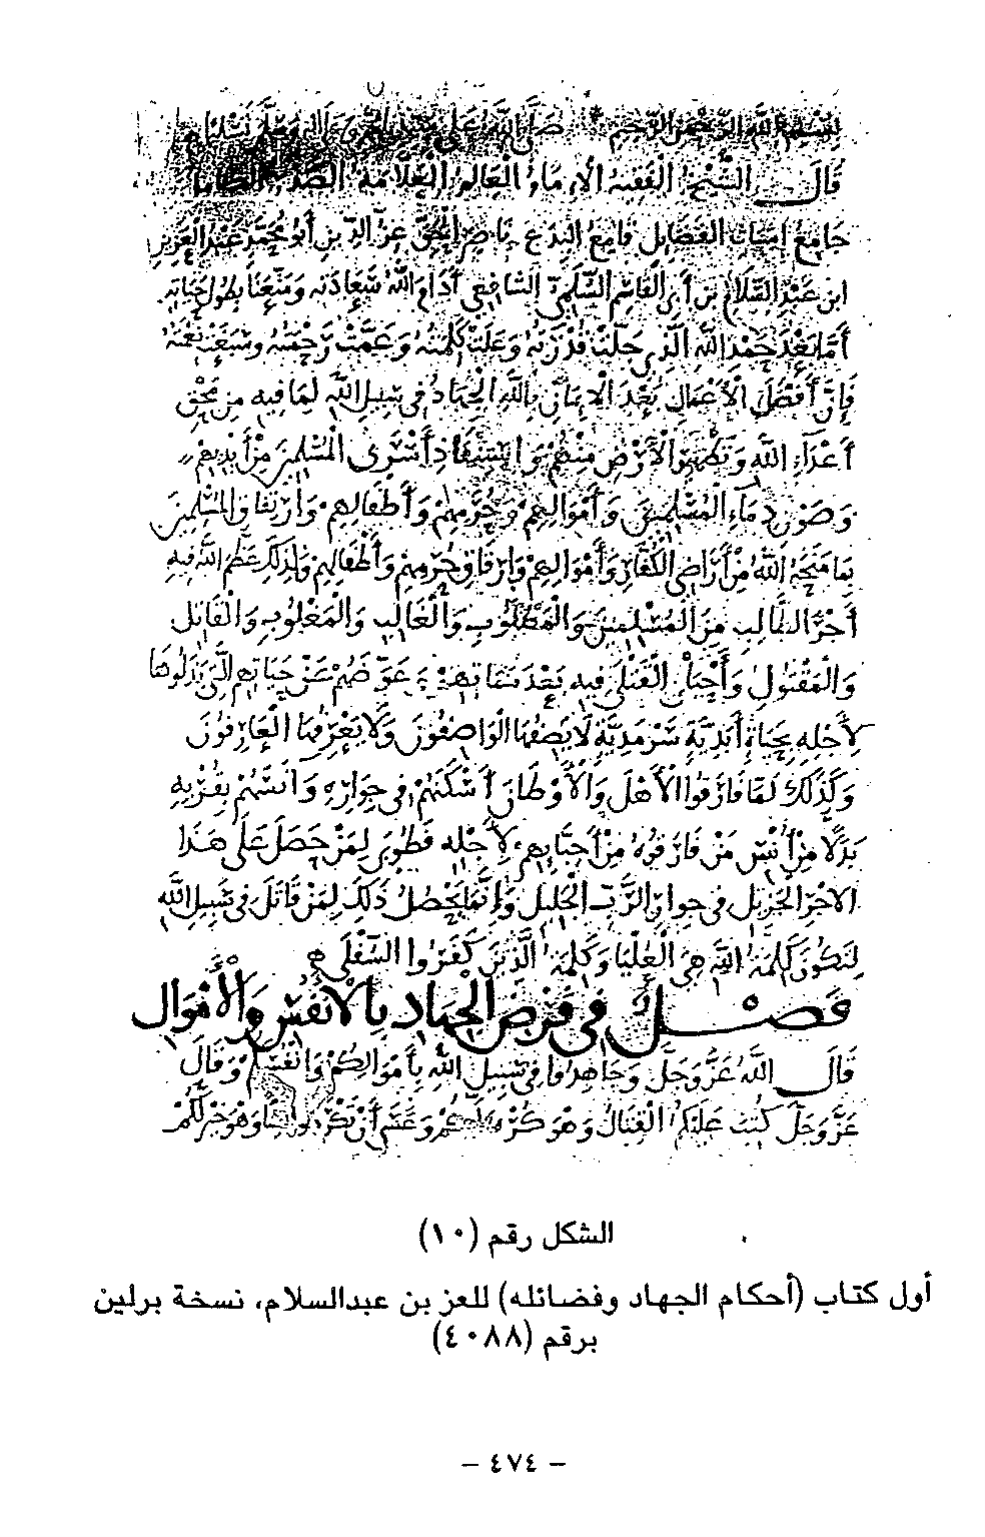 بسم الله الرحمن الرحيم * صلى الله على
قال الشيخ الفقيه الإمام العالم العلامة الصدر
جامع أشتات الفضائل قامع البدع ناصر الحق عز الدين أبو محمد عبد العزيز
ابن عبد السلام بن أبي القاسم السلمي الشافعي أدام الله سعادته ومتعنا بطول حياته
أما بعد حمد الله الذي جلت قدرته وعلت كلمته وعمت رحمته وسبغت نعمته
فإن أفضل الأعمال بعد الإيمان بالله الجهاد في سبيل الله لما فيه من محق
أعداء الله وتطهير الأرض منهم واستنقاذ أسرى المسلمين من أيديهم
وصون دماء المسلمين وأموالهم وحرمهم وأطفالهم وارتفاق المسلمين
بما منحهم الله من أراضي الكفار وأموالهم وإرقاق حرمهم وأطفالهم ولذلك عظم الله فيه
أجر الطالب من المسلمين والمطلوب والغالب والمغلوب والقاتل
والمقتول وأحيا القتلى فيه بعد مماتهم عوضهم عن حياتهم التي بذلوها
لأجله بحياة أبدية سرمدية لا يصفها الواصفون ولا يعرفها العارفون
وكذلك لما فارقوا الأهل والأوطان أسكنهم في جواره وآنسهم بقربه
بدلا من أنس من فارقوه من أحبابهم لأجله فطوبى لمن حصل على هذا
الأجر الجزيل في جوار الرب الجليل وإنما يحصل ذلك لمن قاتل في سبيل الله
لتكون كلمة الله هي العليا وكلمة الذين كفروا السفلى
فصل في فرض الجهاد بالأنفس والأموال
قال الله عز وجل وجاهدوا في سبيل الله بأموالكم وأنفسكم وقال
عز وجل كتب عليكم القتال وهو كره لكم وعسى أن تكرهوا شيئا وهو خير لكم
الشكل رقم (١٠)
أول كتاب (أحكام الجهاد وفضائله) للعز بن عبدالسلام، نسخة برلين
برقم (٤٠٨٨)
- ٤٧٤ -